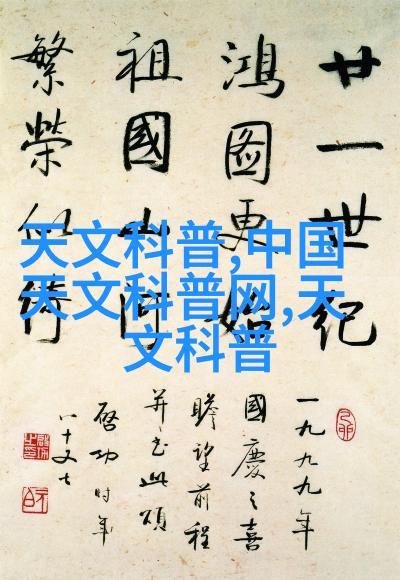 廿一世紀
鴻圖更始
祖國山河
繁榮似綺
一九九九年
國慶之喜
瞻望前程
并书此頌
啓功时年
八十又七
天文科普,中国
天文科普网,天
文科普